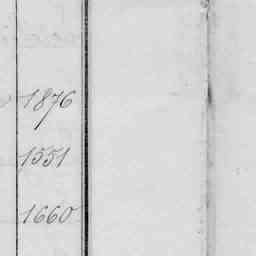 1876
1551
1660